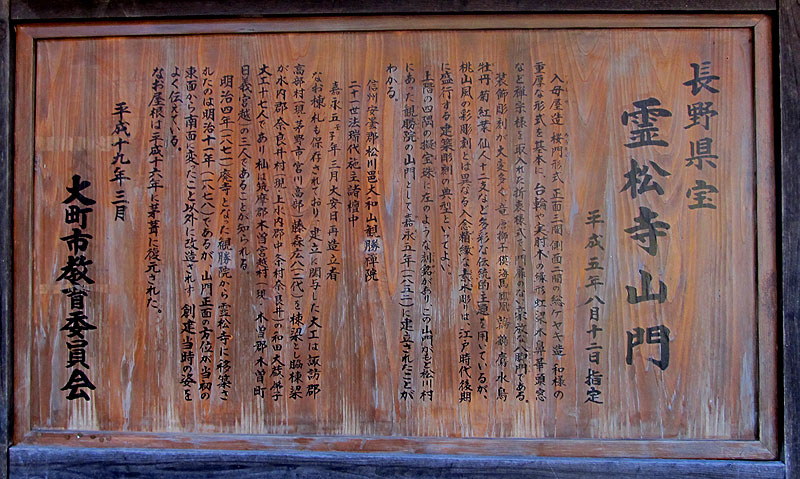 長野県宝
霊松寺山門
平成五年八月十二日指定
入母屋造 楼門形式 正面三間 側面二間の総ケヤキ造 和様の
重厚な形式を基本に、台輪や実肘木の繰形 虹梁 木鼻 華頭窓
など禅宗様を取入れた折衷様式を
装飾彫刻が大変多く 竜 唐獅子
牡丹 菊 紅葉 仙人 十二支など多彩な伝統的主題を用いているが、
桃山風の彩彫刻とは異なる入念精緻な素木彫りは、江戸時代後期
に盛行する建築彫刻の典型といってよい。
上階の四隅の擬宝珠に左のような刻銘があり この山門がもと松川村
にあった観勝院の山門として嘉永五年(一八五二)に建立されたことが
わかる。
信州安曇郡松川邑大和山観勝禅院
二十一世法瑞代施主諸檀中
嘉永五壬子年三月大安日再造立者
なお棟札も保存されており、建立に関与した大工は諏訪郡
高部村(現・茅野市宮川高部)藤森広八(二代)を棟梁とし脇棟梁
が水内郡奈良井村(現上水内郡中条村奈良井)の和田大蔵 弟子
大工十七人であり 杣は筑摩郡木曽宮越村(現・木曽郡木曽町
日義宮越)の三人であることが知られる。
明治四年(一八七一)廃寺となった観勝院から霊松寺に移築さ
れたのは明治十一年(一八七八)であるが、山門正面の方位が当初の
東面から南面に変ったこと以外に改造されず 創建当時の姿を
よく伝えている。
なお屋根は平成十六年に茅葺に復元された。
平成十九年三月
大町市教育委員会